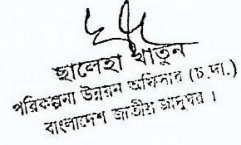 ছালেহা খাতুন
পরিকল্পনা উন্নয়ন অফিসার (চ.দা.)
বাংলাদেশ জাতীয় জাদুঘর ।